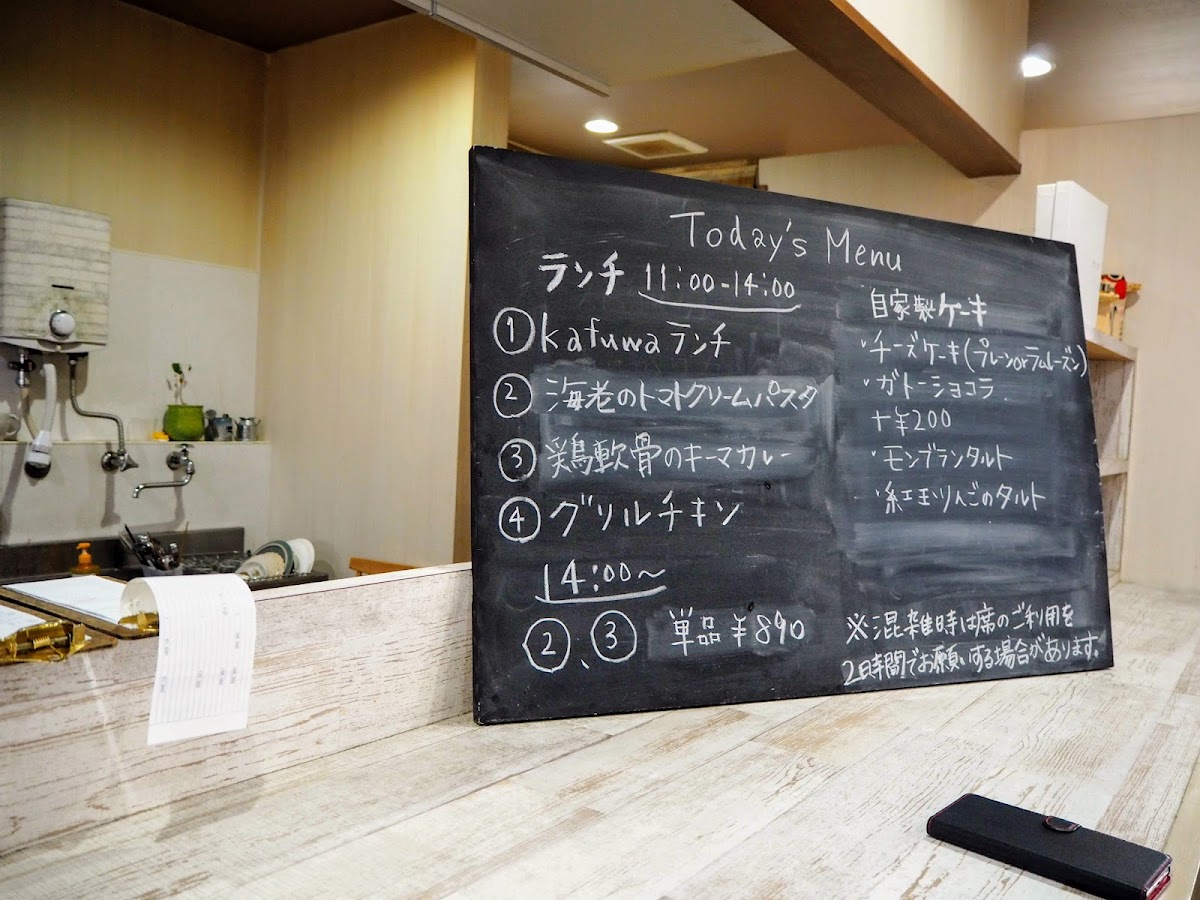 Today's Menu
ランチ 11:00-14:00
①kafuwaランチ
②海老のトマトクリームパスタ
③鶏軟骨のキーマカレー
④グリルチキン
14:00〜
②、③ 単品¥890
自家製ケーキ
・チーズケーキ(プレーンorラムレーズン)
・ガトーショコラ
+¥200
・モンブランタルト
・紅玉りんごのタルト
※混雑時は席のご利用を
2時間でお願いする場合があります。